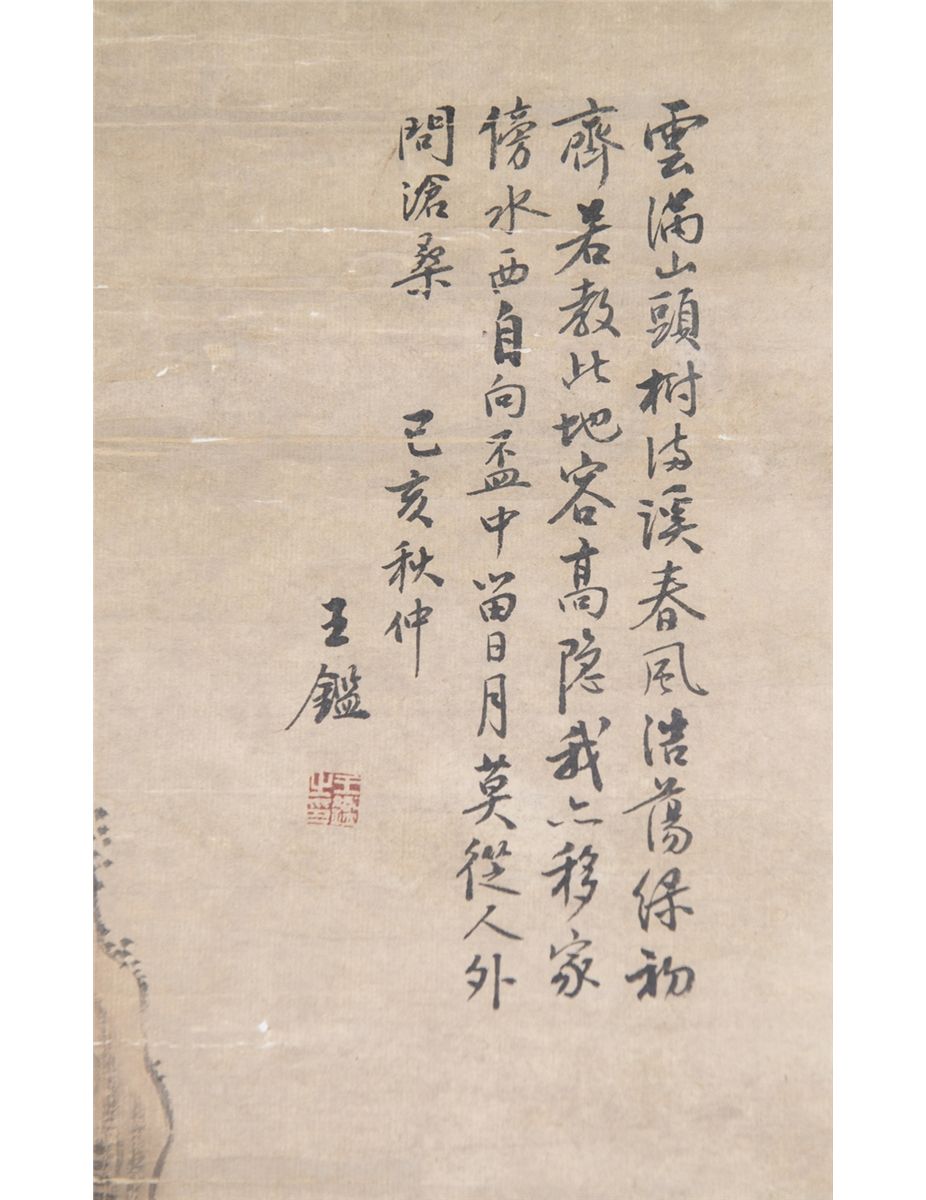 雲满山頭樹满溪春風浩蕩綠初
齊若教此地容高隐我亦移家
傍水西自向盃中留日月莫從人外
問滄桑 己亥秋仲
王鑑
王鑑之印